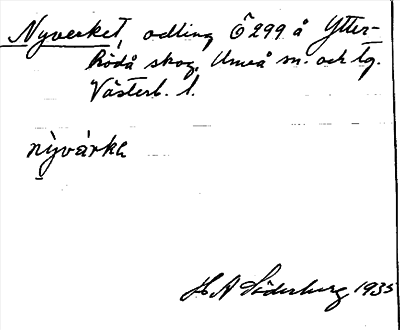 Nyverket, odling Ö 299 å Ytter-
Rödå skog, Umeå sn. och tg.
Västerb. l.
nỳvä́rkə
H A Söderberg 1935